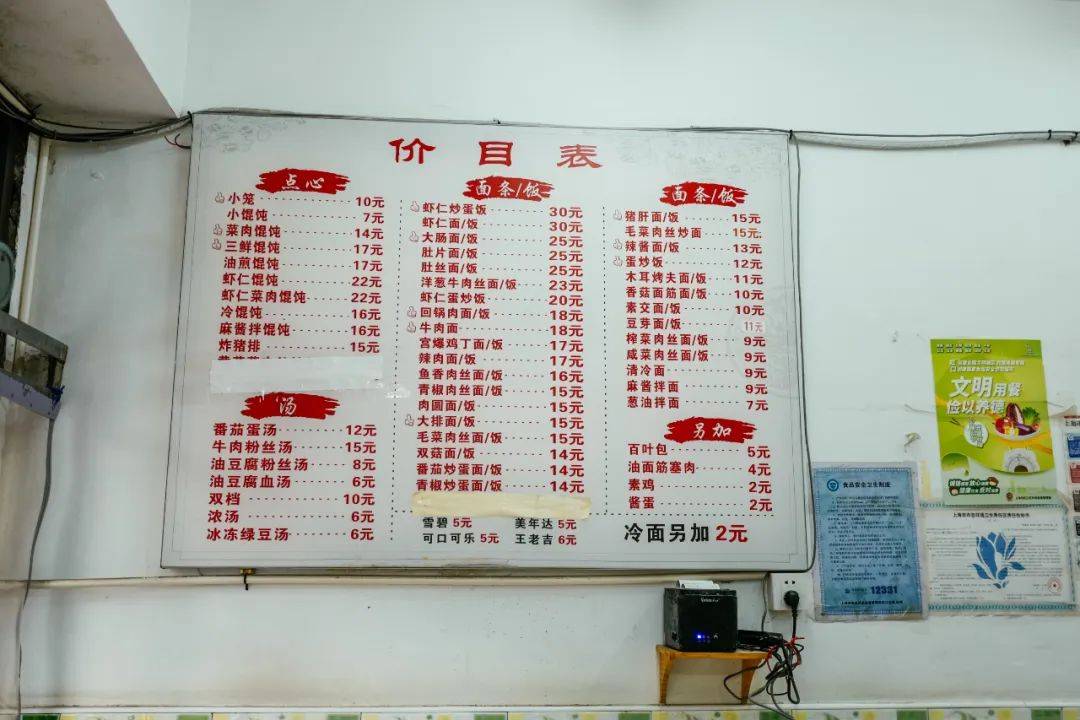 价目表
点心
小笼 10元
小馄饨 7元
菜肉馄饨 14元
三鲜馄饨 17元
油煎馄饨 17元
虾仁馄饨 22元
虾仁菜肉馄饨 22元
冷馄饨 16元
麻酱拌馄饨 16元
炸猪排 15元
汤
番茄蛋汤 12元
牛肉粉丝汤 15元
油豆腐粉丝汤 8元
油豆腐血汤 6元
双档 10元
浓汤 6元
冰冻绿豆汤 6元
面条/饭
虾仁炒蛋饭 30元
虾仁面/饭 30元
大肠面/饭 25元
肚片面/饭 25元
肚丝面/饭 25元
洋葱牛肉丝面/饭 23元
虾仁蛋炒饭 20元
回锅肉面/饭 18元
牛肉面 18元
宫爆鸡丁面/饭 17元
辣肉面/饭 17元
鱼香肉丝面/饭 16元
青椒肉丝面/饭 15元
肉圆面/饭 15元
大排面/饭 15元
毛菜肉丝面/饭 15元
双菇面/饭 14元
番茄炒蛋面/饭 14元
青椒炒蛋面/饭 14元
雪碧 5元 美年达 5元
可口可乐 5元 王老吉 6元
面条/饭
猪肝面/饭 15元
毛菜肉丝炒面 15元
辣酱面/饭 13元
蛋炒饭 12元
木耳烤夫面/饭 11元
香菇面筋面/饭 10元
素交面/饭 10元
豆芽面/饭 11元
榨菜肉丝面/饭 9元
咸菜肉丝面/饭 9元
清冷面 9元
麻酱拌面 9元
葱油拌面 7元
另加
百叶包 5元
油面筋塞肉 4元
素鸡 2元
酱蛋 2元
冷面另加 2元
文明用餐
俭以养德
食品安全卫生制度
12331